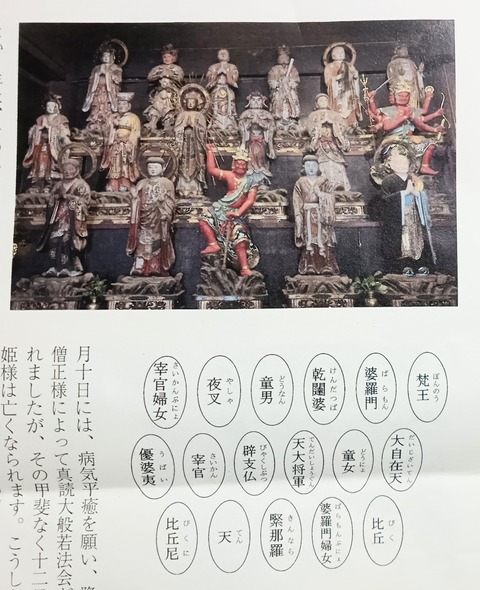 梵王
ぼんのう
婆羅門
ばらもん
乾闥婆
けんだつば
童男
どうなん
夜叉
やしゃ
宰官婦女
さいかんぶにょ
大自在天
だいじざいてん
童女
どうにょ
天大将軍
てんだいしょうぐん
辟支仏
びゃくしぶつ
宰官
さいかん
優婆夷
うばい
比丘
びく
婆羅門婦女
ばらもんぶにょ
緊那羅
きんなら
天
てん
比丘尼
びくに
月十日には、病気平癒を願い、
僧正様によって真読大般若法会が
れましたが、その甲斐なく十二
姫様は亡くなられます。こうし